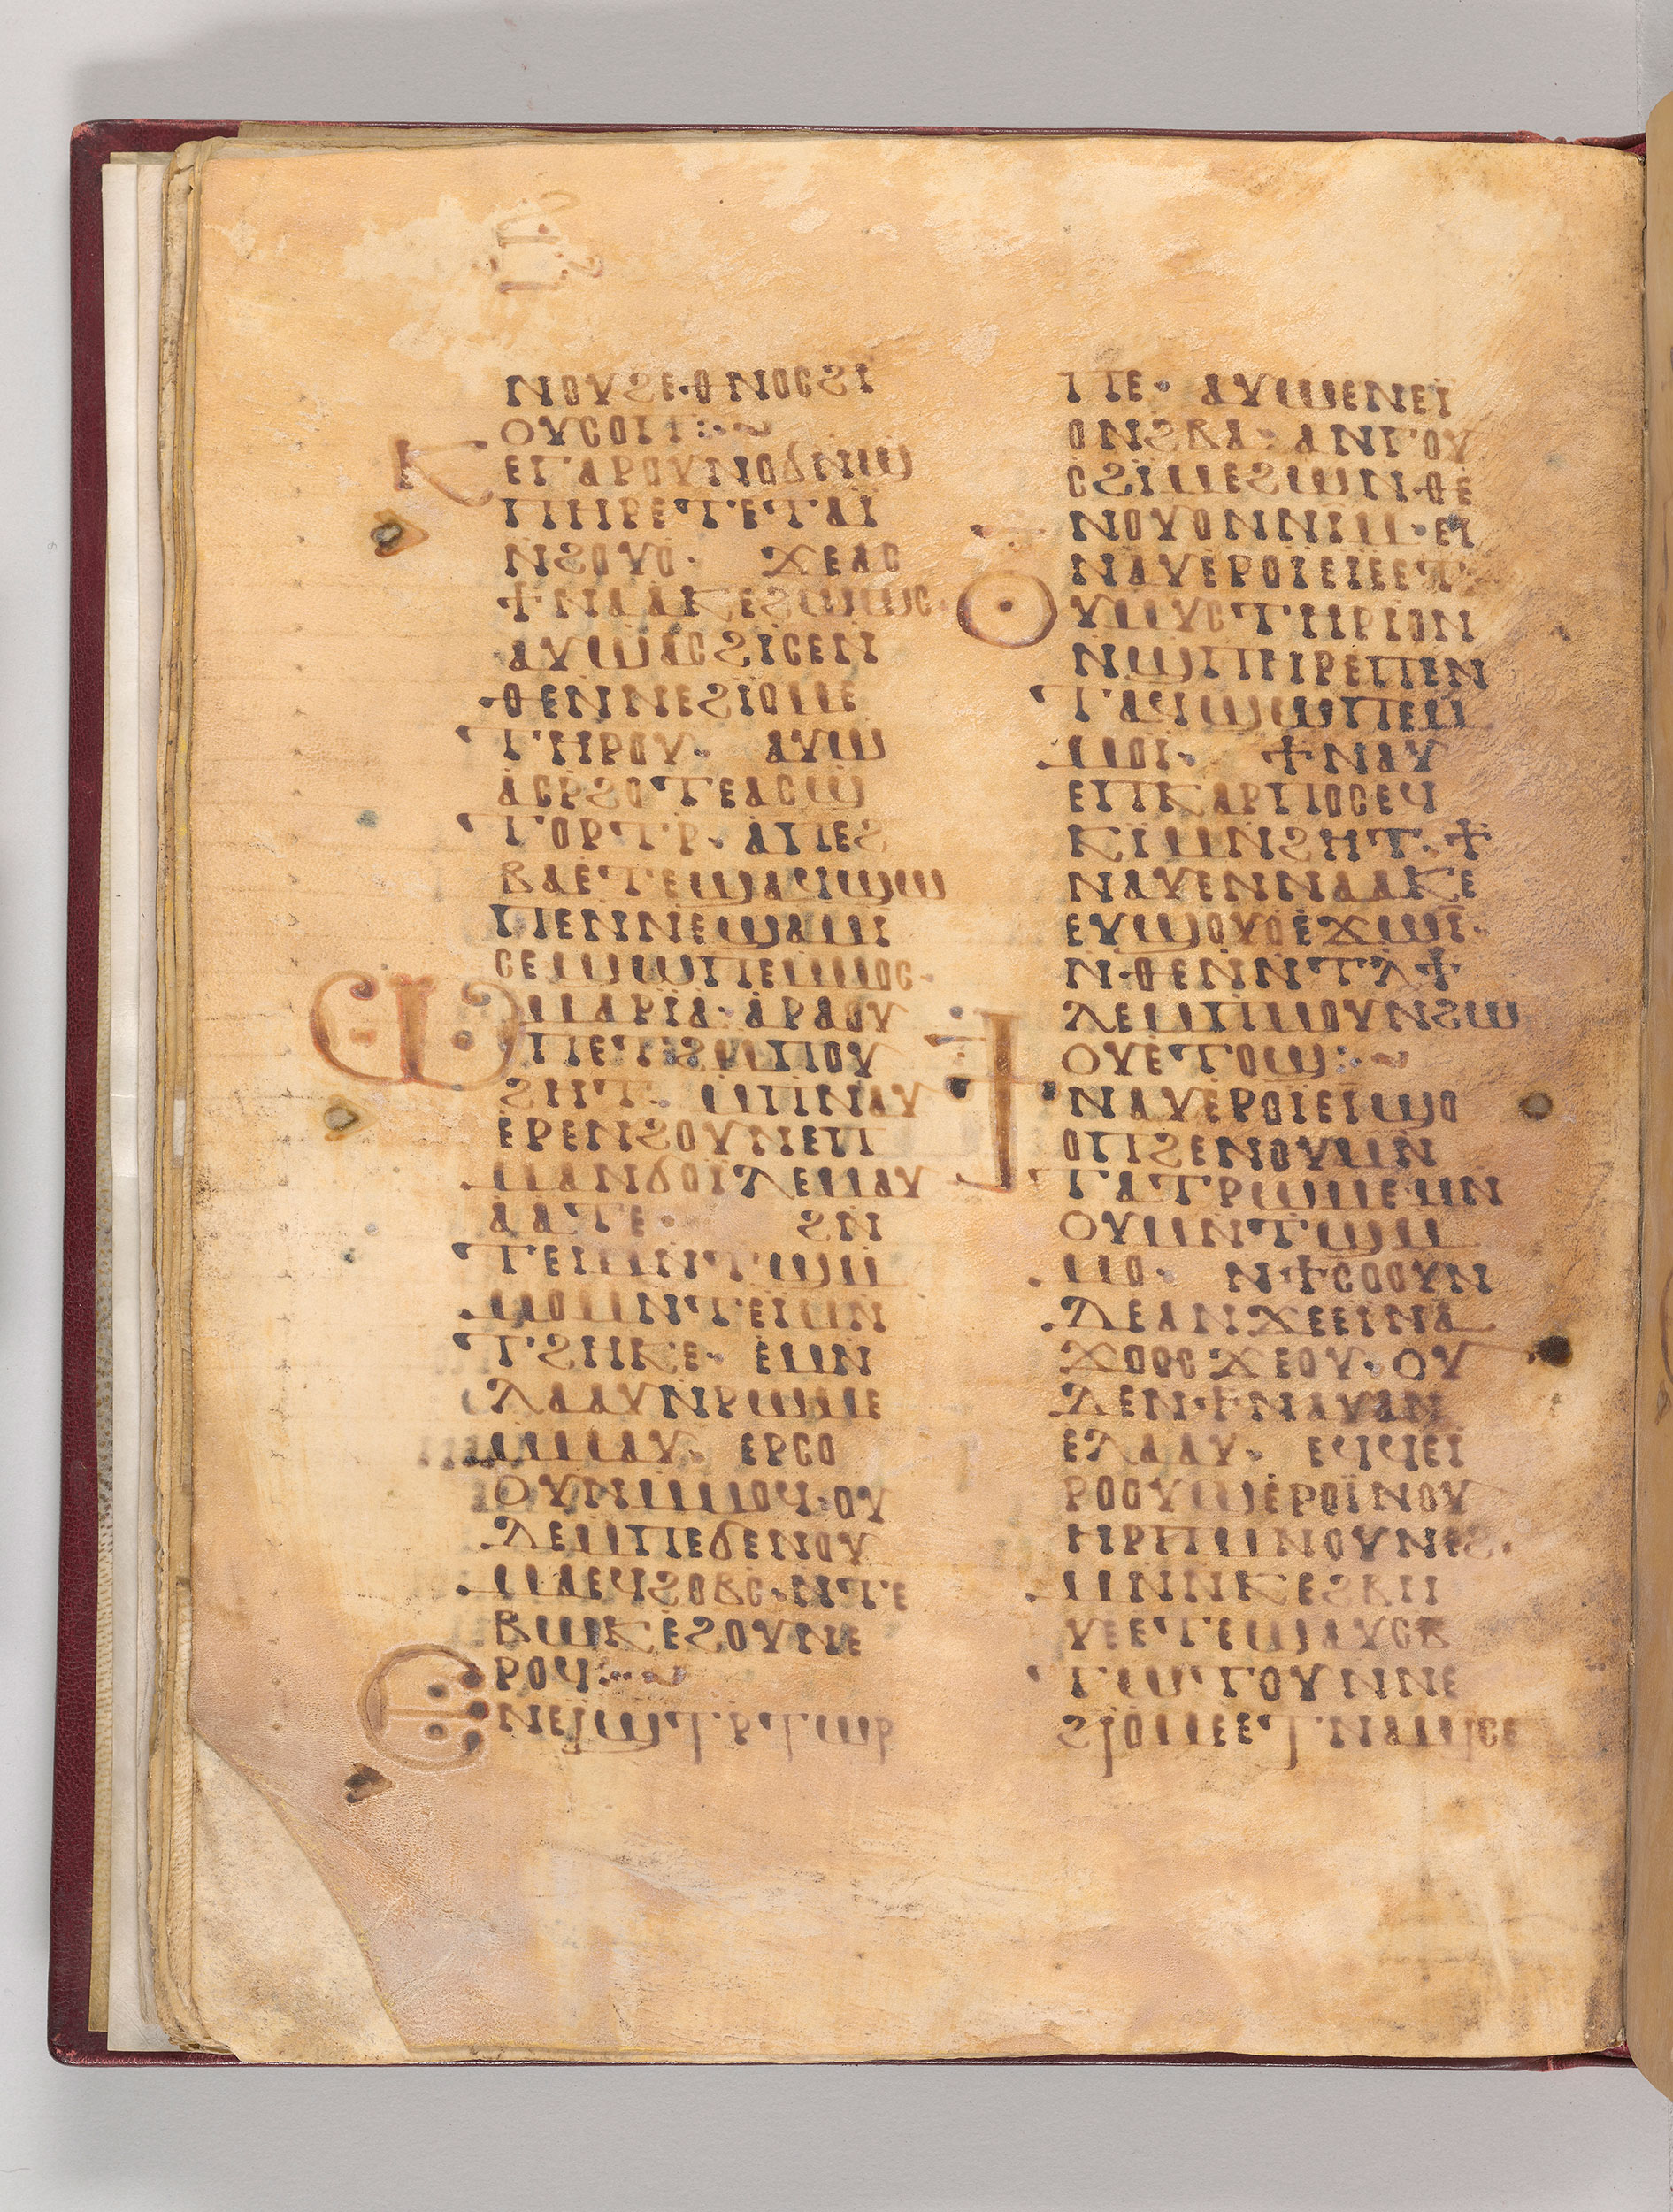 ⲛⲟⲩϩⲉ·ⲑⲛⲟⲥϩⲓ
ⲟⲩⲥⲟⲡ:~
ⲕⲉⲅⲁⲣⲟⲩⲛⲟϭⲛϣ
ⲡⲏⲣⲉⲧⲉⲧⲁⲓ̈
ⲛϩⲟⲩⲟ· ϫⲉⲁⲥ
ϯⲛⲁⲁⲕⲉϩⲱⲱⲥ·
ⲁⲩⲱⲁⲥϩⲓⲥⲉⲛ
ⲑⲉⲛⲛⲉϩⲓⲟⲙⲉ
ⲧⲏⲣⲟⲩ· ⲁⲩⲱ
ⲁⲥⲣϩⲟⲧⲉⲁⲥϣ
ⲧⲟⲣⲧⲣ· ⲁⲡⲉϩ
ⲃⲁⲉⲧⲉϣⲁϥϣⲱ
ⲡⲉⲛⲛⲉϣⲁⲩⲙⲓ
ⲥⲉϣⲱⲡⲉⲙⲙⲟⲥ·
ⲱⲙⲁⲣⲓⲁ·ⲁⲣⲁⲟⲩ
ⲡⲉⲧϩⲙⲡⲟⲩ
ϩⲏⲧ· ⲙⲡⲛⲁⲩ
ⲉⲣⲉⲛϩⲟⲩⲛⲉⲡ
ⲙⲁⲛϭⲟⲓ̈ⲗⲉⲙⲁⲩ
ⲁⲁⲧⲉ· ϩⲛ
ⲧⲉⲙⲛⲧϣⲙ
ⲙⲟⲙⲛⲧⲉⲙⲛ
ⲧϩⲏⲕⲉ· ⲉⲙⲛ
ⲗⲁⲁⲩⲛⲣⲱⲙⲉ
ⲙⲙⲁⲩ· ⲉⲣⲥⲟ
ⲟⲩⲛⲙⲙⲟϥ·ⲟⲩ
ⲇⲉⲙⲡⲉϭⲉⲛⲟⲩ
ⲙⲁⲉϥϩⲟⲃⲥ·ⲛⲧⲉ
ⲃⲱⲕⲉϩⲟⲩⲛⲉ
ⲣⲟϥ:~
ⲉⲛⲉϣⲧⲣⲧⲱⲣ
ⲡⲉ· ⲁⲩⲱⲉⲛⲉⲓ̈
ⲟⲛϩⲃⲁ· ⲁⲛⲧⲟⲩ
ⲥϩⲓⲙⲉϩⲱⲛ·ⲑⲉ
ⲛⲟⲩⲟⲛⲛⲓⲙ·ⲉⲓ
ⲛⲁⲩⲉⲣⲟⲓ̈ⲉⲓⲉⲉⲧ·
ⲟⲩⲙⲩⲥⲧⲏⲣⲓⲟⲛ
ⲛϣⲡⲏⲣⲉⲡⲉⲛ
ⲧⲁϥϣⲱⲡⲉⲙ
ⲙⲟⲓ̈· ϯⲛⲁⲩ
ⲉⲡⲕⲁⲣⲡⲟⲥⲉϥ
ⲕⲓⲙⲛϩⲏⲧ·ϯ
ⲛⲁⲩⲉⲛⲛⲁⲁⲕⲉ
ⲉⲩϣⲟⲩⲟⲉϫⲱⲓ·
ⲛ·ⲑⲉⲛⲛⲧⲗϯ
ⲗⲉⲙⲡⲙⲟⲩⲛϩⲱ
ⲟⲩⲉⲧⲟϣ:~
ϯⲛⲁⲩⲉⲣⲟⲓ̈ⲉⲓϣⲟ
ⲟⲡϩⲉⲛⲟⲩⲙⲛ
ⲧⲁⲧⲣⲱⲙⲉ·ⲙⲛ
ⲟⲩⲙⲛⲧϣⲙ
ⲙⲟ· ⲛϯⲥⲟⲟⲩⲛ
ⲇⲉⲁⲛϫⲉⲉⲓⲛⲁ
ϫⲟⲟⲥϫⲉⲟⲩ·ⲟⲩ
ⲇⲉⲛϯⲛⲁⲩⲁⲛ
ⲉⲗⲁⲁⲩ· ⲉϥϥⲓ
ⲣⲟⲟⲩϣⲉⲣⲟⲓ̈ⲛⲟⲩ
ⲏⲣⲡⲙⲛⲟⲩⲛⲉϩ·
ⲙⲛⲛⲕⲉϩⲃⲏ
ⲩⲉⲉⲧⲉϣⲁⲩⲥⲃ
ⲧⲱⲧⲟⲩⲛⲛⲉ
ϩⲓⲟⲙⲉⲉⲧⲛⲁⲙⲓⲥⲉ